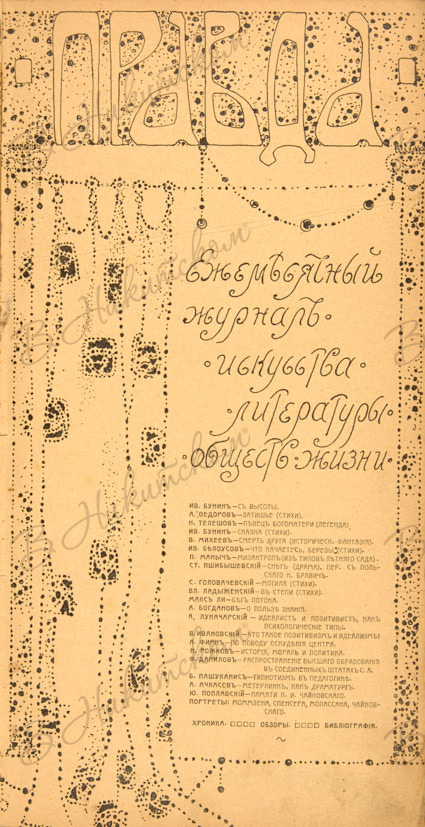 ПРАВДА
Ежемѣсячный
журналъ
искусства
литературы
обществ. жизни
ИВ. БУНИНЪ—СЪ ВЫСОТЫ.
А. ФЕДОРОВЪ—ЗАТИШЬЕ (СТИХИ).
Н. ТЕЛЕШОВЪ—ПѢВЕЦЪ БОГОМАТЕРИ (ЛЕГЕНДА).
ИВ. БУНИНЪ—СКАЗКА (СТИХИ).
В. МИХЕЕВЪ—СМЕРТЬ ДРУГА (ИСТОРИЧЕСК. ФАНТАЗІЯ).
ИВ. БѢЛОУСОВЪ—ЧТО КАЧАЕТЕСЬ, БЕРЕЗЫ (СТИХИ).
П. МАНЫЧЪ—МИЗАНТРОПЪ (ИЗЪ ТИПОВЪ ЛѢТНЯГО САДА).
СТ. ПШИБЫШЕВСКІЙ—СНѢГЪ (ДРАМА). ПЕР. СЪ ПОЛЬ-
СКАГО К. БРАВИЧЪ.
С. ГОЛОВАЧЕВСКІЙ—МОГИЛА (СТИХИ).
ВЛ. ЛАДЫЖЕНСКІЙ—ВЪ СТЕПИ (СТИХИ).
МАКСЪ ЛИ—БѢГЪ ПОТОКА.
А. БОГДАНОВЪ—О ПОЛЬЗѢ ЗНАНІЯ.
А. ЛУНАЧАРСКІЙ—ИДЕАЛИСТЪ И ПОЗИТИВИСТЪ, КАКЪ
ПСИХОЛОГИЧЕСКІЕ ТИПЫ.
В. ИВАНОВСКІЙ—ЧТО ТАКОЕ ПОЗИТИВИЗМЪ И ИДЕАЛИЗМЪ
А. ФИНЪ—ПО ПОВОДУ ОСКУДѢНІЯ ЦЕНТРА.
Н. РОЖКОВЪ—ИСТОРІЯ, МОРАЛЬ И ПОЛИТИКА.
Ф. ДАНИЛОВЪ—РАСПРОСТРАНЕНІЕ ВЫСШАГО ОБРАЗОВАНІЯ
ВЪ СОЕДИНЕННЫХЪ ШТАТАХЪ С. А.
Б. ПАШУКАНИСЪ—ГИПНОТИЗМЪ ВЪ ПЕДАГОГИКѢ.
А. АЧКАСОВЪ—МЕТЕРЛИНКЪ, КАКЪ ДРАМАТУРГЪ.
Ю. ПОПЛАВСКІЙ—ПАМЯТИ П. И. ЧАЙКОВСКАГО.
ПОРТРЕТЫ: МОММЗЕНА, СПЕНСЕРА, МОПАССАНА, ЧАЙКОВ-
СКАГО.
ХРОНИКА. ОБЗОРЫ. БИБЛІОГРАФІЯ.
В Никитском
В Никитском
В Никитском
В Никитском